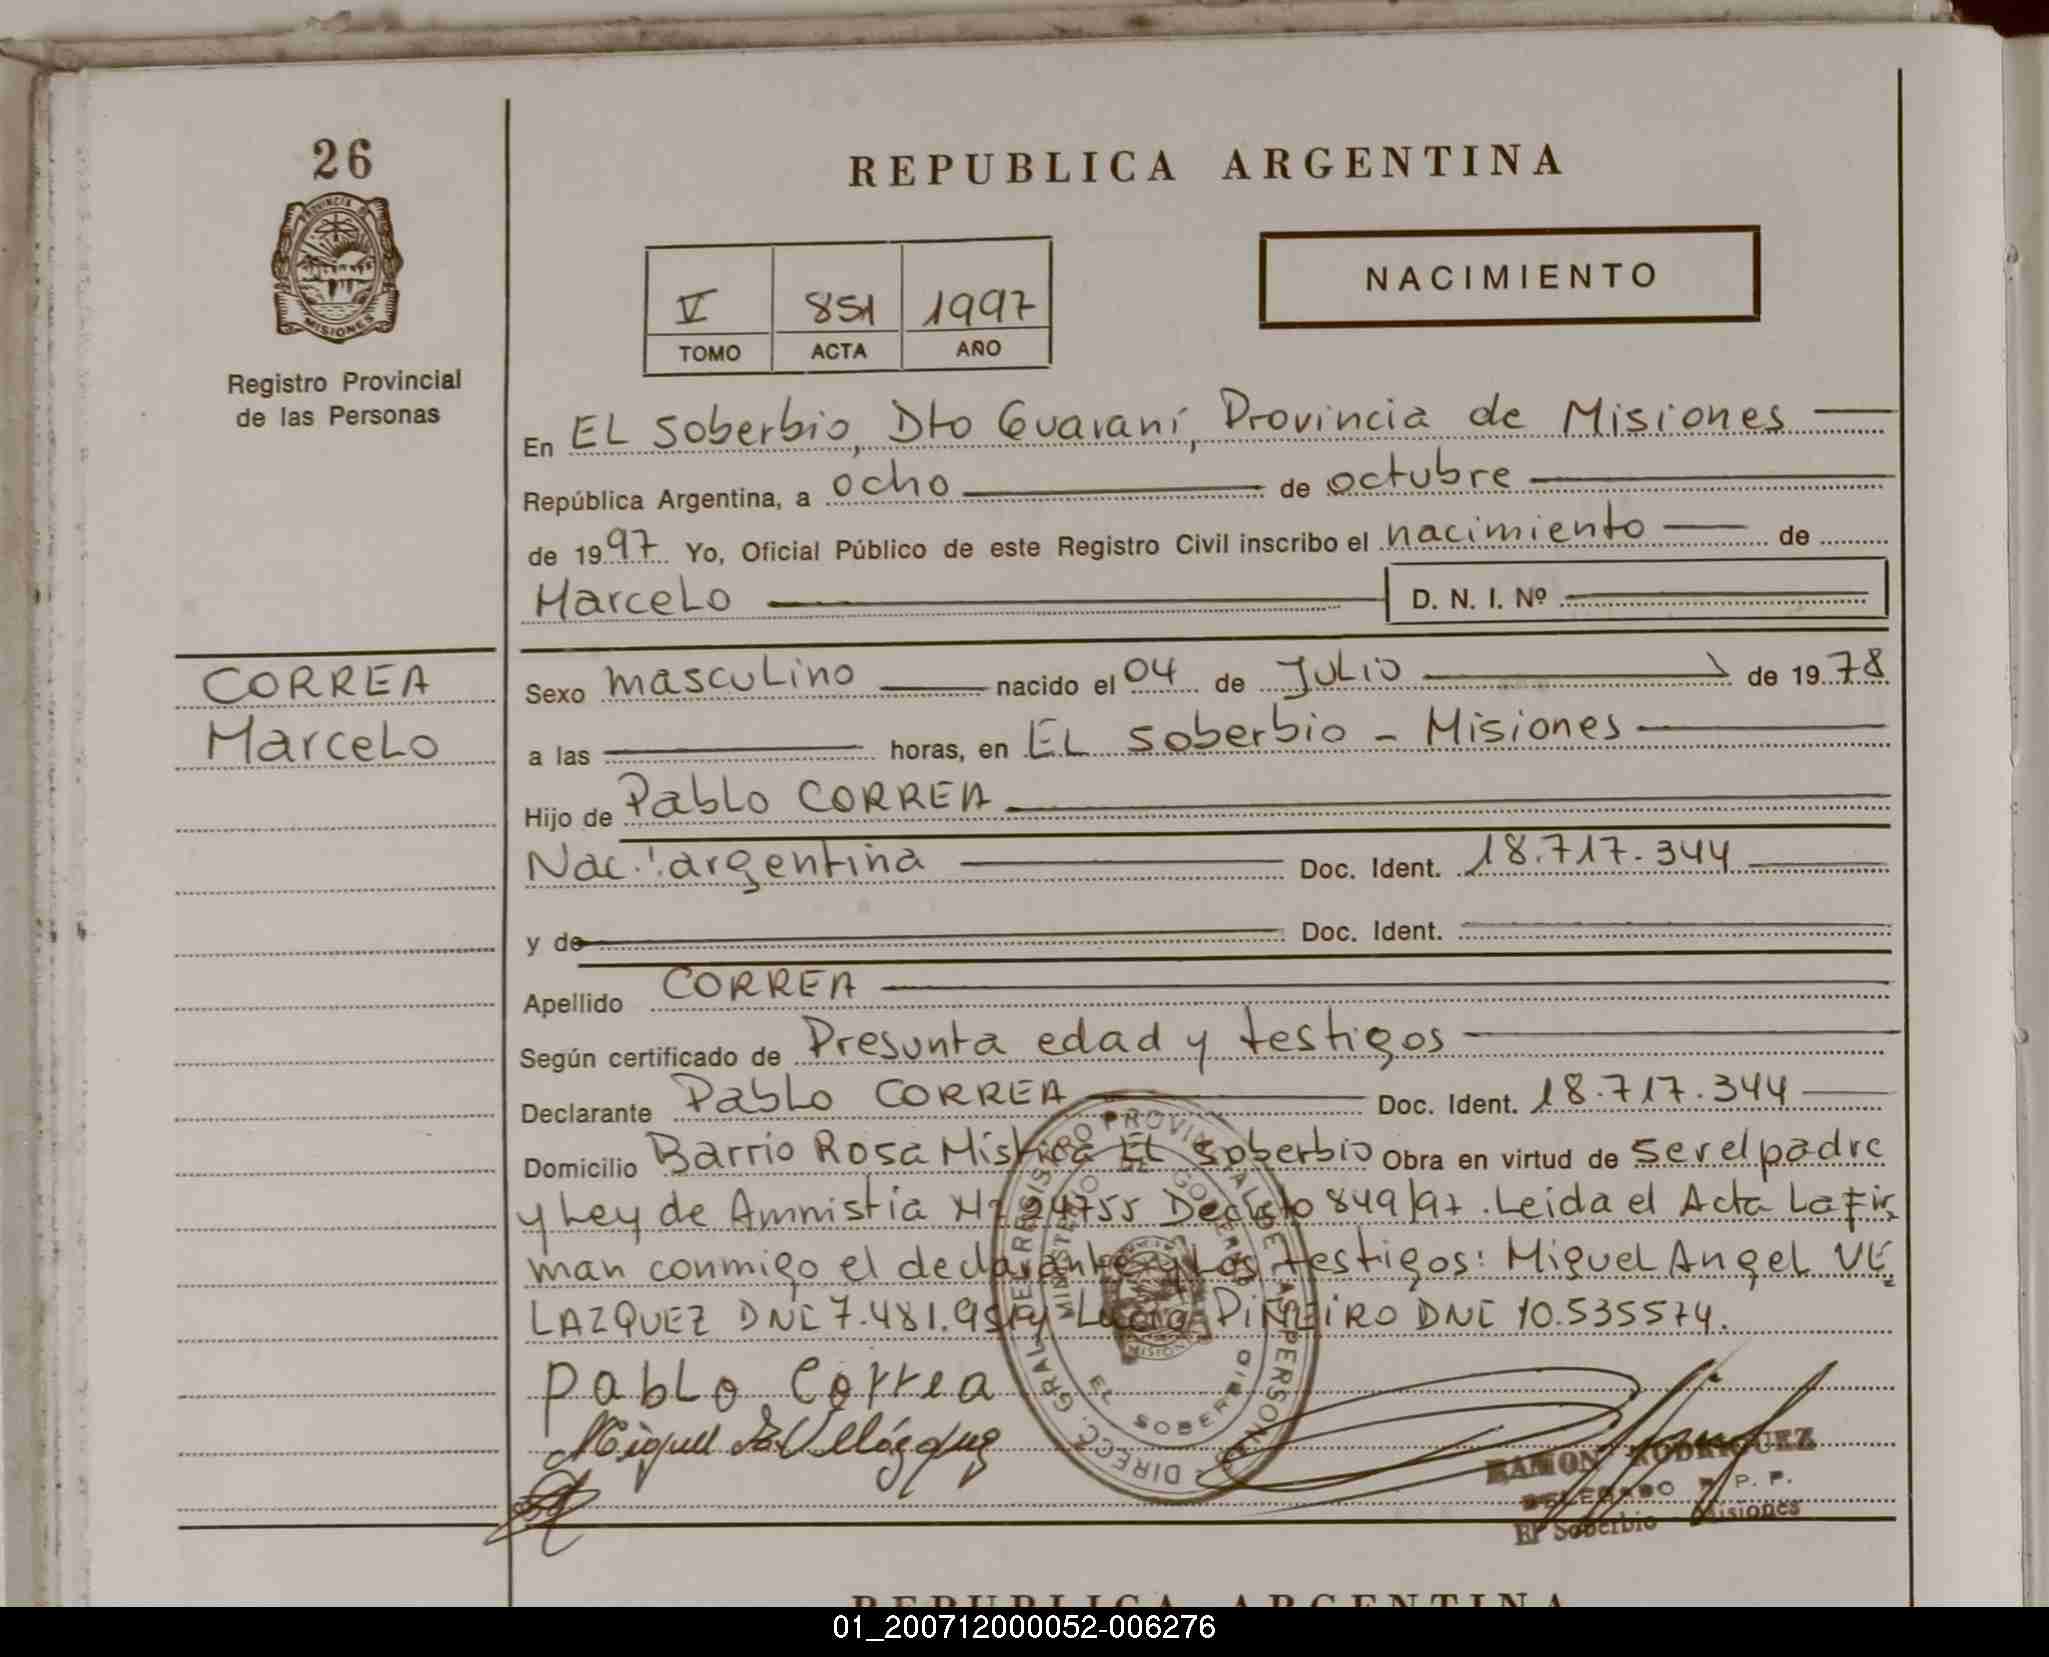 26
PROVINCIA DE
MISIONES
Registro Provincial
de las Personas
REPUBLICA ARGENTINA
V 851 1997
TOMO ACTA AÑO
NACIMIENTO
En EL Soberbio, Dto Guaraní, Provincia de Misiones
República Argentina, a ocho de octubre
de 1997 Yo, Oficial Público de este Registro Civil inscribo el nacimiento de
Marcelo D. N. I. Nº
CORREA
Marcelo
Sexo masculino nacido el 04 de Julio de 1978
a las horas, en EL Soberbio - Misiones
Hijo de Pablo CORREA
Nac.: argentina Doc. Ident. 18.717.344
y de Doc. Ident.
Apellido CORREA
Según certificado de Presunta edad y testigos
Declarante Pablo CORREA Doc. Ident. 18.717.344
Domicilio Barrio Rosa Mística EL Soberbio Obra en virtud de ser el padre
y Ley de Amnistia Nº 24755 Decreto 849/97. Leida el Acta La Fir
man conmigo el declarante y Los testigos: Miguel Angel VE
LAZQUEZ DNI 7.481.9 y PIÑEIRO DNI 10.535574.
Pablo Correa
Miguel A Velázquez
DIRECC. GRAL. DE REGISTRO PROVINCIAL DE LAS PERSONAS
MINISTERIO DE GOBIERNO
MISIONES
EL SOBERBIO
RAMON RODRIGUEZ
DELEGADO R. P. P.
El Soberbio Misiones
REPUBLICA ARGENTINA
01_200712000052-006276